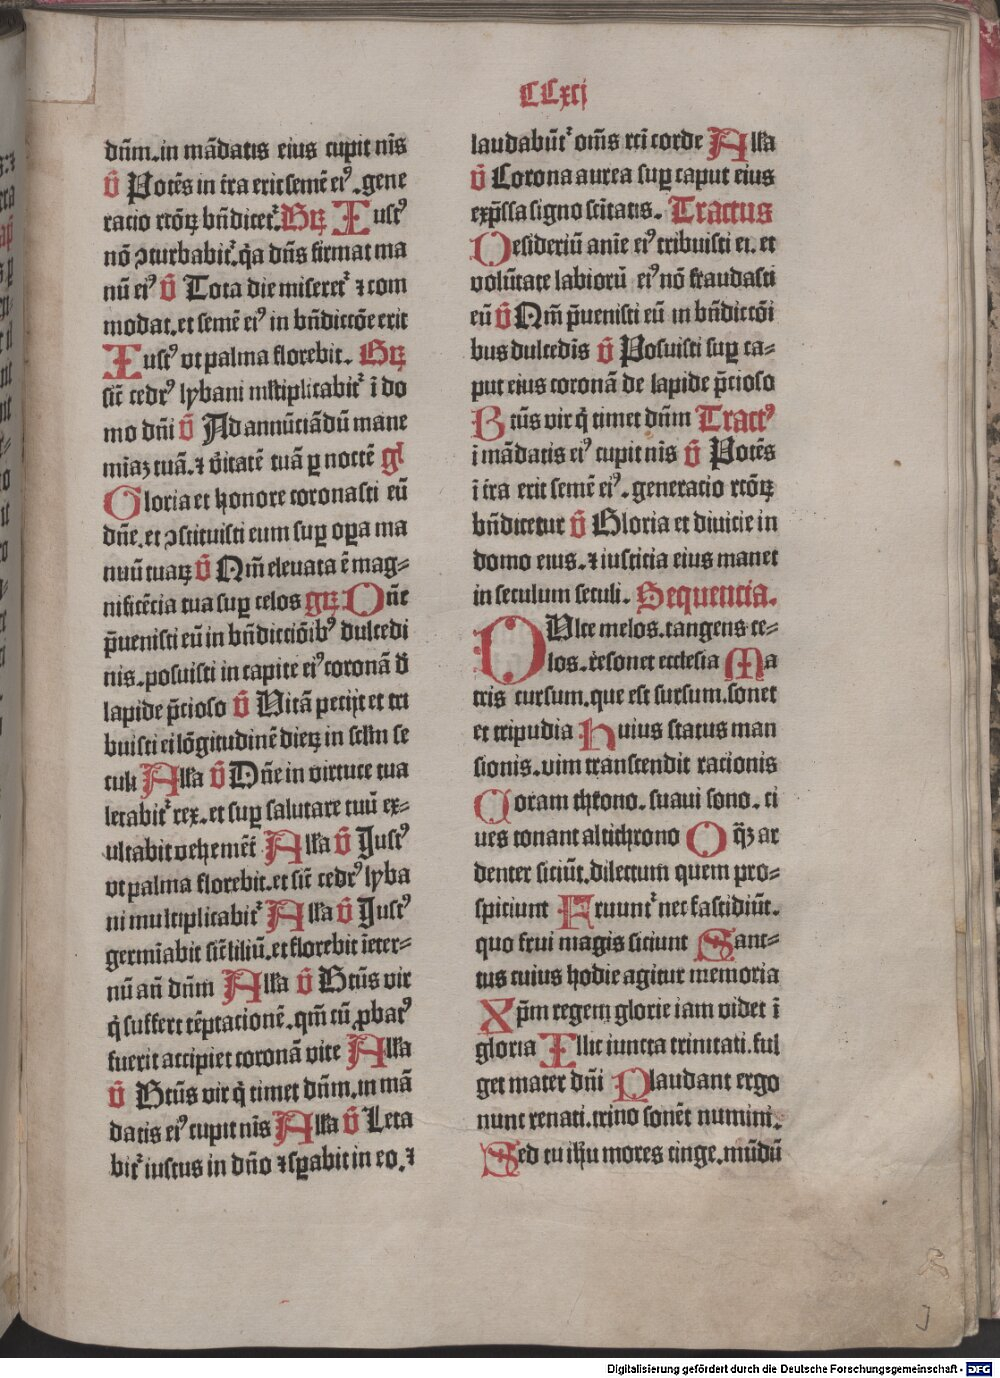 CCxcj
dn̄m.in mādatis eius cupit nīs
v̄ Potēs in t̄ra erit semē eiꝰ.gene
racio rc̄tōꝝ bn̄dicet᷑.Gꝝ Iustꝰ
nō ↄturbabit᷑.q̄a dn̄s firmat ma
nū eiꝰ v̄ Tota die miseret᷑ ⁊ com
modat.et semē eiꝰ in bn̄dictōe erit
Iustꝰ vt palma florebit. Gꝝ
sic̄ cedrꝰ lybani ml̄tiplicabit᷑ ī do
mo dn̄i v̄ Ad annūciādū mane
mīaꝫ tuā.⁊ v̄itatē tuā ꝑ noctē gl̄
Gloria et honore coronasti eū
dn̄e.et ↄstituisti eum suꝑ oꝑa ma
nuū tuaꝝ v̄ Qm̄ eleuata ē mag-
nificēcia tua suꝑ celos gꝝ Dn̄e
p̄uenisti eū in bn̄dicciōibꝰ dulcedi
nis.posuisti in capite eiꝰ coronā đ
lapide p̄cioso v̄ Vitā petijt et tri
buisti ei lōgitudinē dieꝝ in scl̄m se
culi All̄a v̄ Dn̄e in virtute tua
letabit᷑ rex.et suꝑ salutare tuū ex-
ultabit vehemēt̄ All̄a v̄ Iustꝰ
vt palma florebit.et sic̄ cedrꝰ lyba
ni multiplicabit᷑ All̄a v̄ Iustꝰ
germīabit sic̄ liliū.et florebit īeter-
nū an̄ dn̄m All̄a v̄ Btūs vir
q̄ suffert tēptacionē.qm̄ cū ꝓbatꝰ
fuerit accipiet coronā vite All̄a
v̄ Btūs vir q̄ timet dn̄m.in mā
datis eiꝰ cupit nīs All̄a v̄ Leta
bit᷑ iustus in dn̄o ⁊ sꝑabit in eo.⁊
laudabūt᷑ om̄s rc̄ti corde All̄a
v̄ Corona aurea suꝑ caput eius
exp̄ssa signo sc̄itatis. Tractus
Desideriū anīe eiꝰ tribuisti ei.et
volūtate labiorū eiꝰ nō fraudasti
eū v̄ Qm̄ p̄uenisti eū in bn̄dictōi
bus dulcedīs v̄ Posuisti suꝑ ca-
put eius coronā de lapide p̄cioso
Btūs vir q̄ timet dn̄m Tractꝰ
ī mādatis eiꝰ cupit nīs v̄ Potēs
ī t̄ra erit semē eiꝰ.generatio rc̄tōꝝ
bn̄dicetur v̄ Gloria et diuicie in
domo eius.⁊ iusticia eius manet
in seculum seculi. Sequencia.
DUlce melos.tangens ce-
los.resonet ecclesia Ma
tris cursum.que est sursum.sonet
et tripudia Huius status man
sionis.vim transcendit racionis
Coram throno.suaui sono.ci
ues tonant altichrono O q̄ꝫ ar
denter siciūt.dilectum quem pro-
spiciunt Fruunt᷑ nec fastidiūt.
quo frui magis siciunt Sanc-
tus cuius hodie agitur memoria
Xp̄m regem glorie iam videt ī
gloria Illic iuncta trinitati.ful
get mater dn̄i Plaudant ergo
nunc renati.trino sonēt numini.
Sed tu ih̄u mores tinge.mūdū
Digitalisierung gefördert durch die Deutsche Forschungsgemeinschaft - DFG